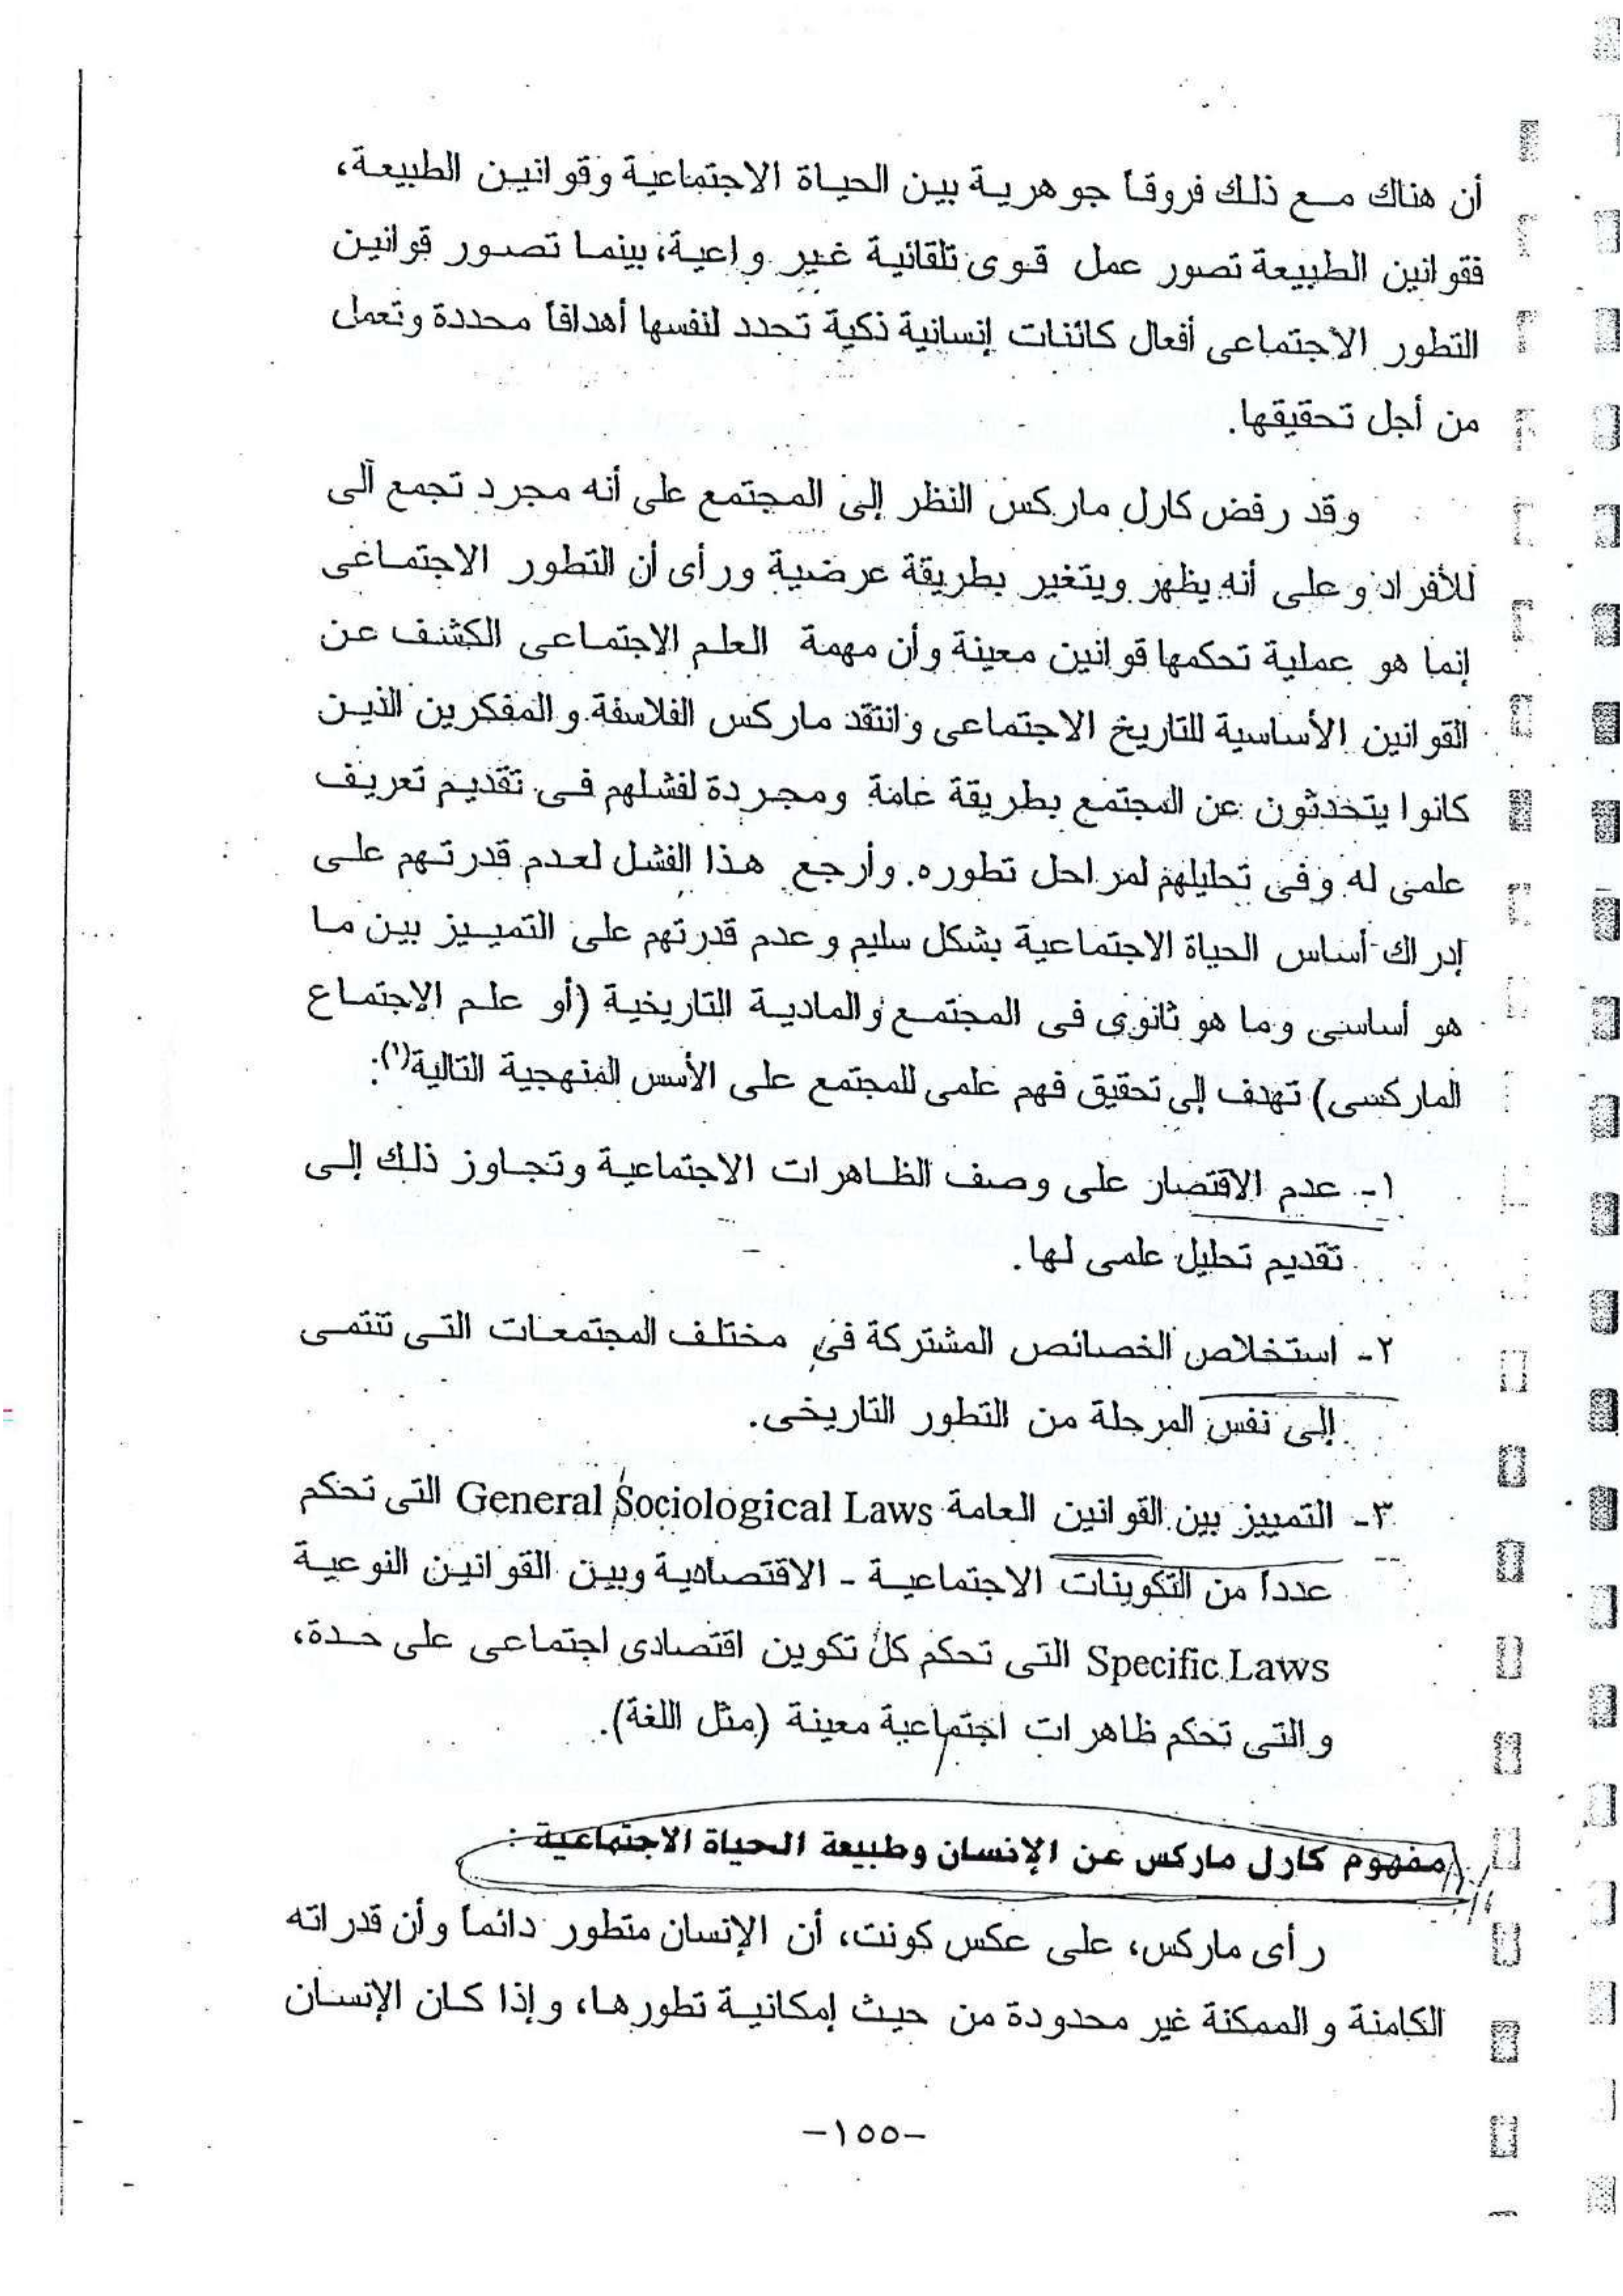 أن هناك مع ذلك فروقاً جوهرية بين الحياة الاجتماعية وقوانين الطبيعة،
فقوانين الطبيعة تصور عمل قوى تلقائية غير واعية، بينما تصور قوانين
التطور الاجتماعى أفعال كائنات إنسانية ذكية تحدد لنفسها أهدافاً محددة وتعمل
من أجل تحقيقها.
وقد رفض كارل ماركس النظر إلى المجتمع على أنه مجرد تجمع آلى
للأفراد وعلى أنه يظهر ويتغير بطريقة عرضية ورأى أن التطور الاجتماعى
إنما هو عملية تحكمها قوانين معينة وأن مهمة العلم الاجتماعى الكشف عن
القوانين الأساسية للتاريخ الاجتماعى وانتقد ماركس الفلاسفة والمفكرين الذين
كانوا يتحدثون عن المجتمع بطريقة عامة ومجردة لفشلهم فى تقديم تعريف
علمى له وفى تحليلهم لمراحل تطوره. وأرجع هذا الفشل لعدم قدرتهم على
إدراك أساس الحياة الاجتماعية بشكل سليم وعدم قدرتهم على التمييز بين ما
هو أساسى وما هو ثانوى فى المجتمع والمادية التاريخية (أو علم الاجتماع
الماركسى) تهدف إلى تحقيق فهم علمى للمجتمع على الأسس المنهجية التالية(١):
١- عدم الاقتصار على وصف الظاهرات الاجتماعية وتجاوز ذلك إلى
تقديم تحليل علمى لها.
٢- استخلاص الخصائص المشتركة فى مختلف المجتمعات التى تنتمى
إلى نفس المرحلة من التطور التاريخى.
٣- التمييز بين القوانين العامة General Sociological Laws التى تحكم
عدداً من التكوينات الاجتماعية - الاقتصادية وبين القوانين النوعية
Specific Laws التى تحكم كل تكوين اقتصادى اجتماعى على حدة،
والتى تحكم ظاهرات اجتماعية معينة (مثل اللغة).
مفهوم كارل ماركس عن الإنسان وطبيعة الحياة الاجتماعية :
رأى ماركس، على عكس كونت، أن الإنسان متطور دائماً وأن قدراته
الكامنة والممكنة غير محدودة من حيث إمكانية تطورها، وإذا كان الإنسان
-١٥٥-